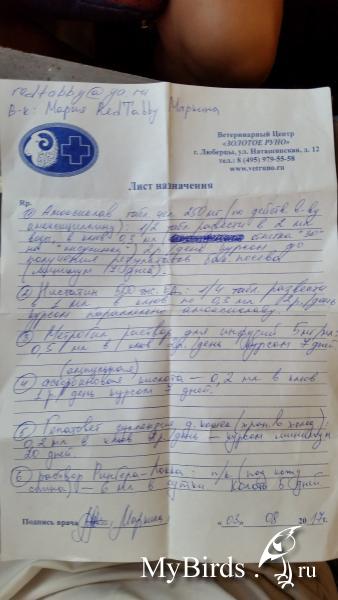 redtabby@ya.ru
В-к: Мария RedTabby Маркина
Ветеринарный Центр
«ЗОЛОТОЕ РУНО»
г. Люберцы, ул. Наташинская, д. 12
тел.: 8 (495) 979-55-58
www.vetruno.ru
Лист назначения
Rp.
1) Амоксиклав табл. 250 мг (по действ. в-ву
амоксициллину): 1/2 табл развести в 2 мл
воды, в клюв 0,3 мл
на "инсулинке") 2р/день курсом до
получения результатов бак посева
(минимум 7 дней).
2) Нистатин 500 тыс. ЕД: 1/4 табл развести
в 1 мл, в клюв по 0,3 мл 2р/день
курсом параллельно амоксиклаву.
3) Метрогил (раствор для инфузий 5 мг/мл):
0,5 мл в клюв 2р/день курсом 7 дней.
(ампульная)
4) аскорбиновая кислота – 0,2 мл в клюв
1р. день курсом 7 дней.
5) Гепатовет суспензия д. кошек (хран. в холод):
0,2 мл в клюв 2р/день – курсом минимум
20 дней.
6) раствор Рингера-Локка: п/к (под кожу
спины) – 6 мл в сутки. Колоть 5 дней
Подпись врача Маркина
«03» 08 2017г.
MyBirds.ru